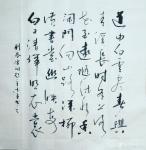 道由白云尽春與
青溪長时有落
花至远随流水香
闲門向山路深柳
读书堂幽映每
白日清辉照衣裳